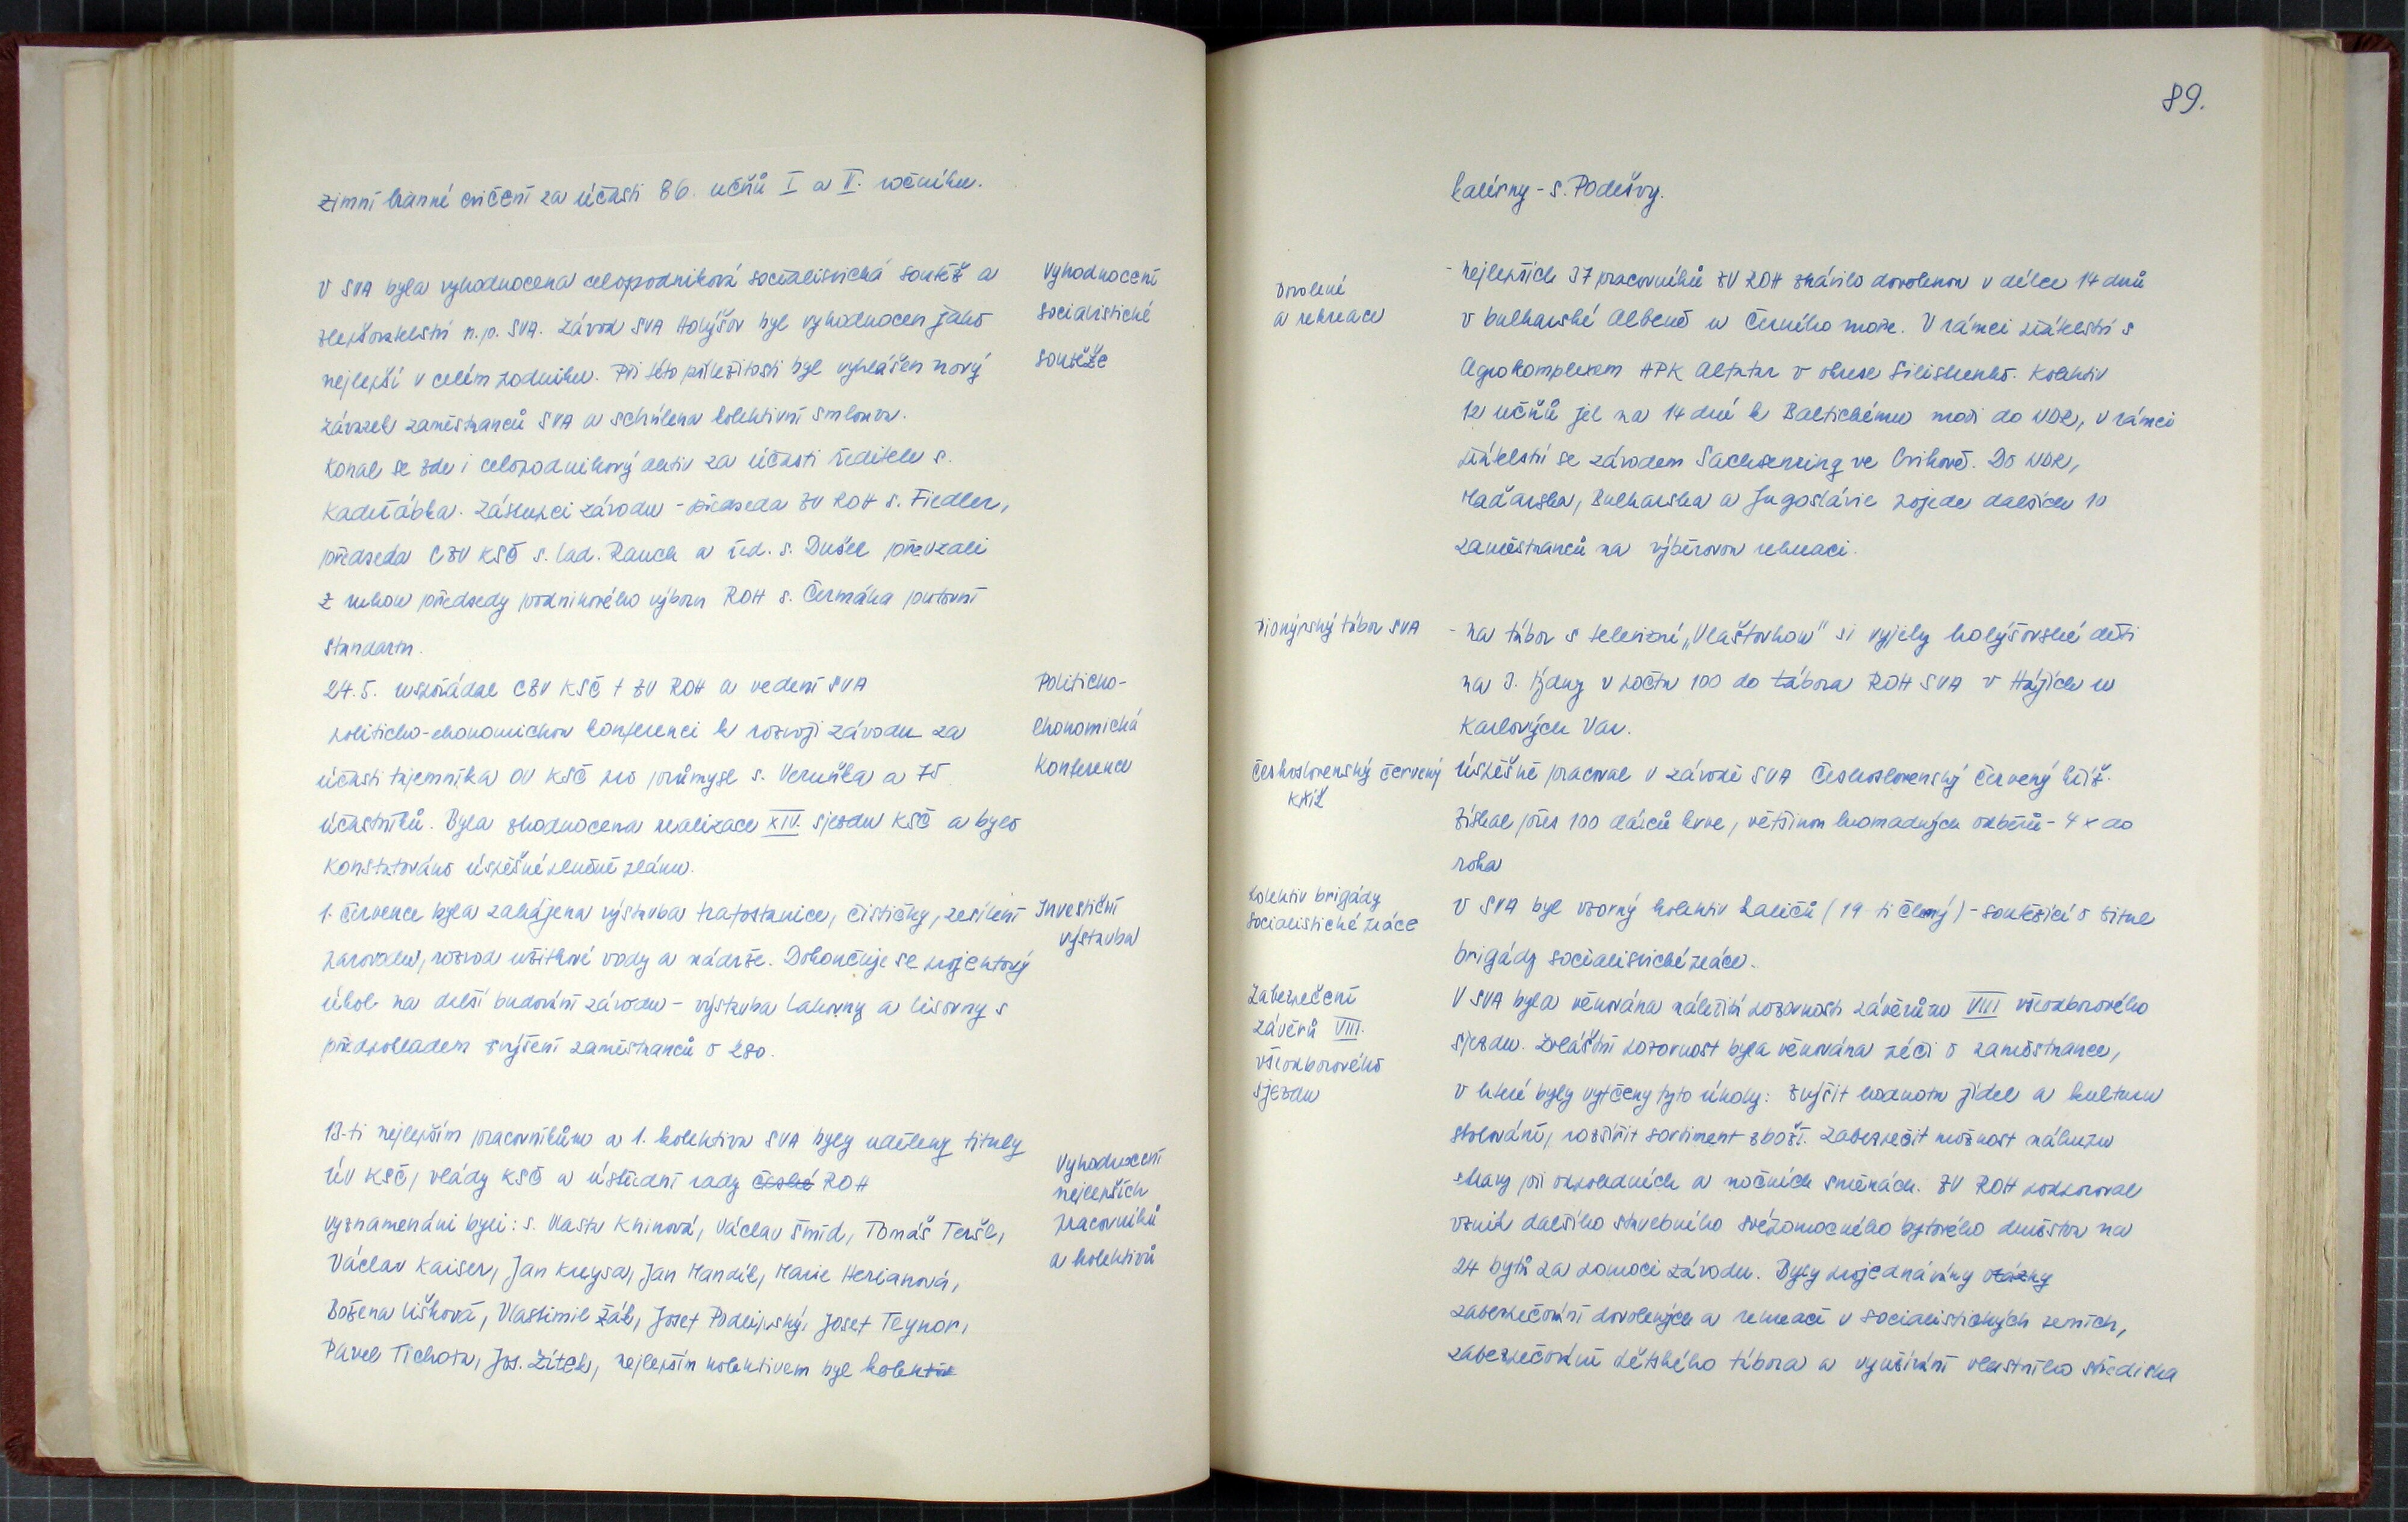 zimní branné cvičení za účasti 86. učňů I a II. ročníku.
V SVA byla vyhodnocena celopodniková socialistická soutěž a
zlepšovatelství n.p. SVA. Závod SVA Holýšov byl vyhodnocen jako
nejlepší v celém podniku. Při této příležitosti byl vyhlášen nový
závazek zaměstnanců SVA a schválena kolektivní smlouva.
Konal se zde i celopodnikový aktiv za účasti ředitele s.
Kadeřábka. Zástupci závodu - předseda ZV ROH s. Fiedler,
předseda CZV KSČ s. Lad. Rauch a řed. s. Dušek převzali
z rukou předsedy podnikového výboru ROH s. Čermáka putovní
standartu.
Vyhodnocení
socialistické
soutěže
24.5. uspořádal CZV KSČ + ZV ROH a vedení SVA
politicko-ekonomickou konferenci k rozvoji závodu za
účasti tajemníka OV KSČ pro průmysl s. Veruňka a 75
účastníků. Byla zhodnocena realizace XIV. sjezdu KSČ a bylo
konstatováno úspěšné plnění plánu.
Politicko-
ekonomická
konference
1. července byla zahájena výstavba trafostanice, čističky, zesílení
parovodu, rozvod užitkové vody a nádrže. Dokončuje se projektový
úkol na další budování závodu - výstavba lakovny a lisovny s
předpokladem zvýšení zaměstnanců o 280.
Investiční
výstavba
13-ti nejlepším pracovníkům a 1. kolektivu SVA byly uděleny tituly
ÚV KSČ, vlády KSČ a ústřední rady české ROH
vyznamenáni byli: s. Vlasta Khinová, Václav Šmíd, Tomáš Teršl,
Václav Kaiser, Jan Kreysa, Jan Mandík, Marie Herianová,
Božena Lišková, Vlastimil Žák, Josef Podlipský, Josef Teynor,
Pavel Tichota, Jos. Žítek, nejlepším kolektivem byl kolektiv
Vyhodnocení
nejlepších
pracovníků
a kolektivů
89.
kalírny - s. Podešvy.
Dovolené
a rekreace
- Nejlepších 37 pracovníků ZV ROH trávilo dovolenou v délce 14 dnů
v bulharské Albeně u Černého moře. V rámci přátelství s
Agrokomplexem APK Alfatar v okrese Silistrenko. Kolektiv
12 učňů jel na 14 dní k Baltickému moři do NDR, v rámci
přátelství se závodem Sachsenring ve Cvikově. Do NDR,
Maďarska, Bulharska a Jugoslávie pojede dalších 10
zaměstnanců na výběrovou rekreaci.
Pionýrský tábor SVA
- na tábor s televizní „Vlaštovkou" si vyjely holýšovské děti
na 3. týdny v počtu 100 do tábora ROH SVA v Hájích u
Karlových Var.
Československý červený
kříž
Úspěšně pracoval v závodě SVA Československý červený kříž.
Získal přes 100 dárců krve, většinou hromadných odběrů - 4 x do
roka
Kolektiv brigády
socialistické práce
V SVA byl vzorný kolektiv kaličů (19 ti členný) - soutěžící o titul
brigády socialistické práce.
Zabezpečení
závěrů VIII.
všeodborového
sjezdu
V SVA byla věnována náležitá pozornost závěrům VIII všeodborového
sjezdu. Zvláštní pozornost byla věnována péči o zaměstnance,
v které byly vytčeny tyto úkoly: zvýšit hodnotu jídel a kulturu
stolování, rozšířit sortiment zboží. Zabezpečit možnost nákupu
stravy při odpoledních a nočních směnách. ZV ROH podporoval
vznik dalšího stavebního svépomocného bytového družstva na
24 bytů za pomoci závodu. Byly projednávány otázky
zabezpečování dovolených a rekreací v socialistických zemích,
zabezpečování dětského tábora a využívání vlastního střediska